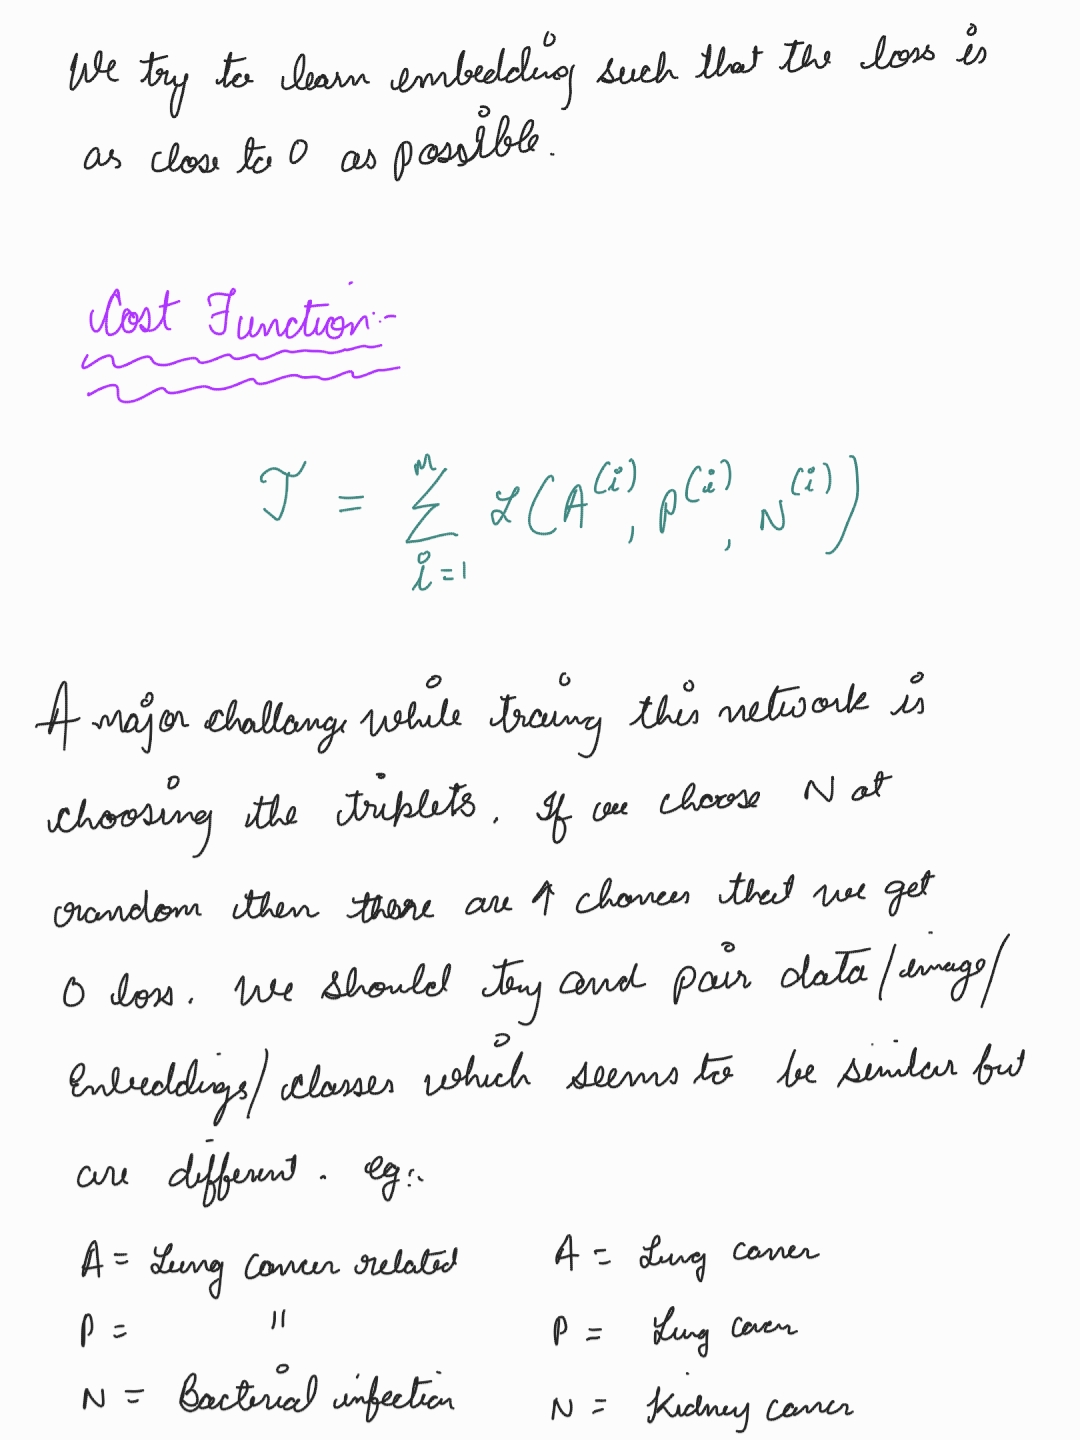 We try to learn embedding such that the loss is
as close to 0 as possible.
Cost Function:-
J = m∑i=1 L(A(i), P(i), N(i))
A major challange while traing this network is
choosing the triplets. If we choose N at
random then there are ↑ chances that we get
0 loss. We should try and pair data/image/
Embeddings/classes which seems to be similar but
are different. eg:.
A = Lung cancer related
P = "
N = Bacterial infection
A = Lung cancer
P = Lung cancer
N = Kidney cancer